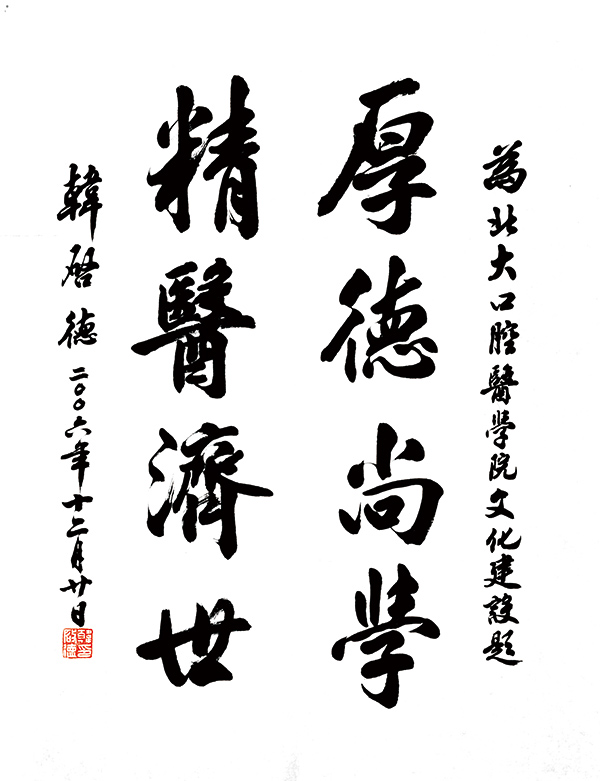 為北大口腔醫學院文化建設題
厚德尚學
精醫濟世
韓啓德 二〇〇六年十二月廿日